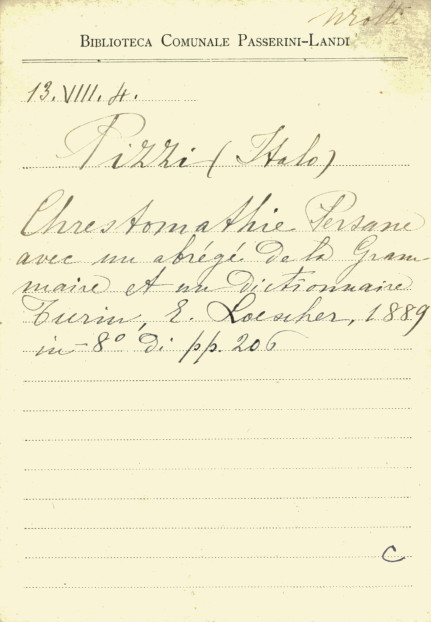 BIBLIOTECA COMUNALE PASSERINI-LANDI
13.VIII.4.
Pizzi (Italo)
Chrestomathie Persane
avec un abrégé de la Gram-
maire et un dictionnaire
Turin, E. Loescher, 1889
in-8° di pp. 206
C